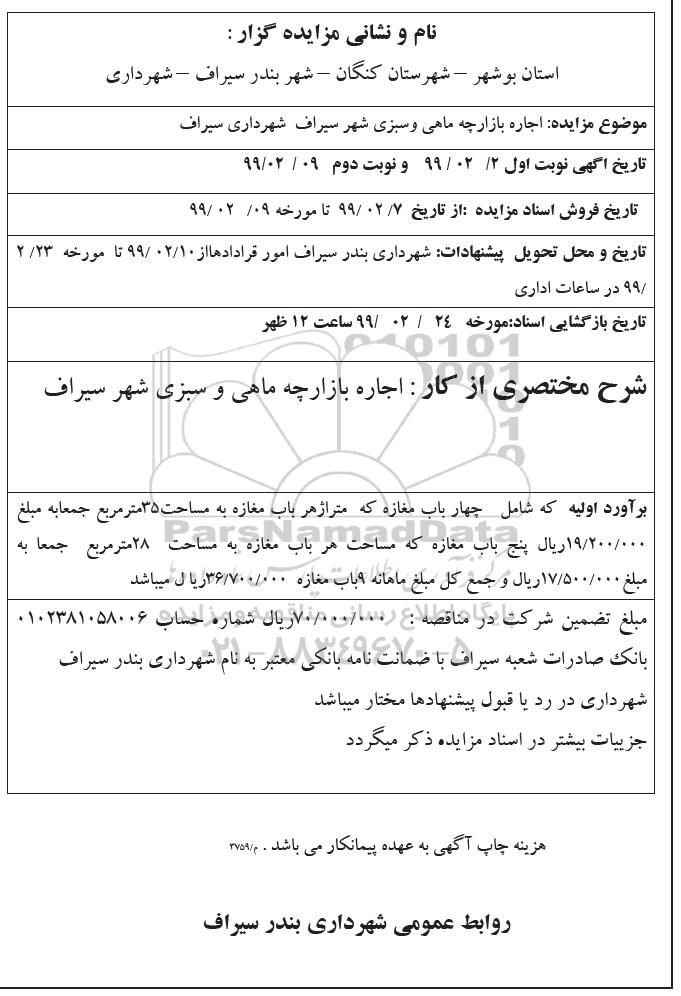 نام و نشانی مزایده گزار :
استان بوشهر – شهرستان کنگان – شهر بندر سیراف – شهرداری
موضوع مزایده: اجاره بازارچه ماهی وسبزی شهر سیراف شهرداری سیراف
تاریخ اگهی نوبت اول ۲/ ۰۲ / ۹۹ و نوبت دوم ۰۹ / ۹۹/۰۲
تاریخ فروش اسناد مزایده :از تاریخ ۷/ ۰۲ /۹۹ تا مورخه ۰۹/ ۰۲ /۹۹
تاریخ و محل تحویل پیشنهادات: شهرداری بندر سیراف امور قرادادهااز۰۲/۱۰ /۹۹ تا مورخه ۲۳/ ۲
/۹۹ در ساعات اداری
تاریخ بازگشایی اسناد:مورخه ۲۴ / ۰۲ /۹۹ ساعت ۱۲ ظهر
شرح مختصری از کار : اجاره بازارچه ماهی و سبزی شهر سیراف
برآورد اولیه که شامل چهار باب مغازه که متراژهر باب مغازه به مساحت۳۵مترمربع جمعابه مبلغ
۱۹/۲۰۰/۰۰۰ریال پنج باب مغازه که مساحت هر باب مغازه به مساحت ۲۸مترمربع جمعا به
مبلغ۱۷/۵۰۰/۰۰۰ریال و جمع کل مبلغ ماهانه ۹باب مغازه ۳۶/۷۰۰/۰۰۰ریا ل میباشد
مبلغ تضمین شرکت در مناقصه : ۷۰/۰۰۰/۰۰۰ریال شماره حساب ۰۱۰۲۳۸۱۰۵۸۰۰۶
بانک صادرات شعبه سیراف با ضمانت نامه بانکی معتبر به نام شهرداری بندر سیراف
شهرداری در رد یا قبول پیشنهادها مختار میباشد
جزییات بیشتر در اسناد مزایده ذکر میگردد
هزینه چاپ آگهی به عهده پیمانکار می باشد . م/۳۷۵۹
روابط عمومی شهرداری بندر سیراف
ParsNamadData
پایگاه اطلاع رسانی مناقصه و مزایده
۰۲۱-۸۸۳۴۹۶۷۰-۵